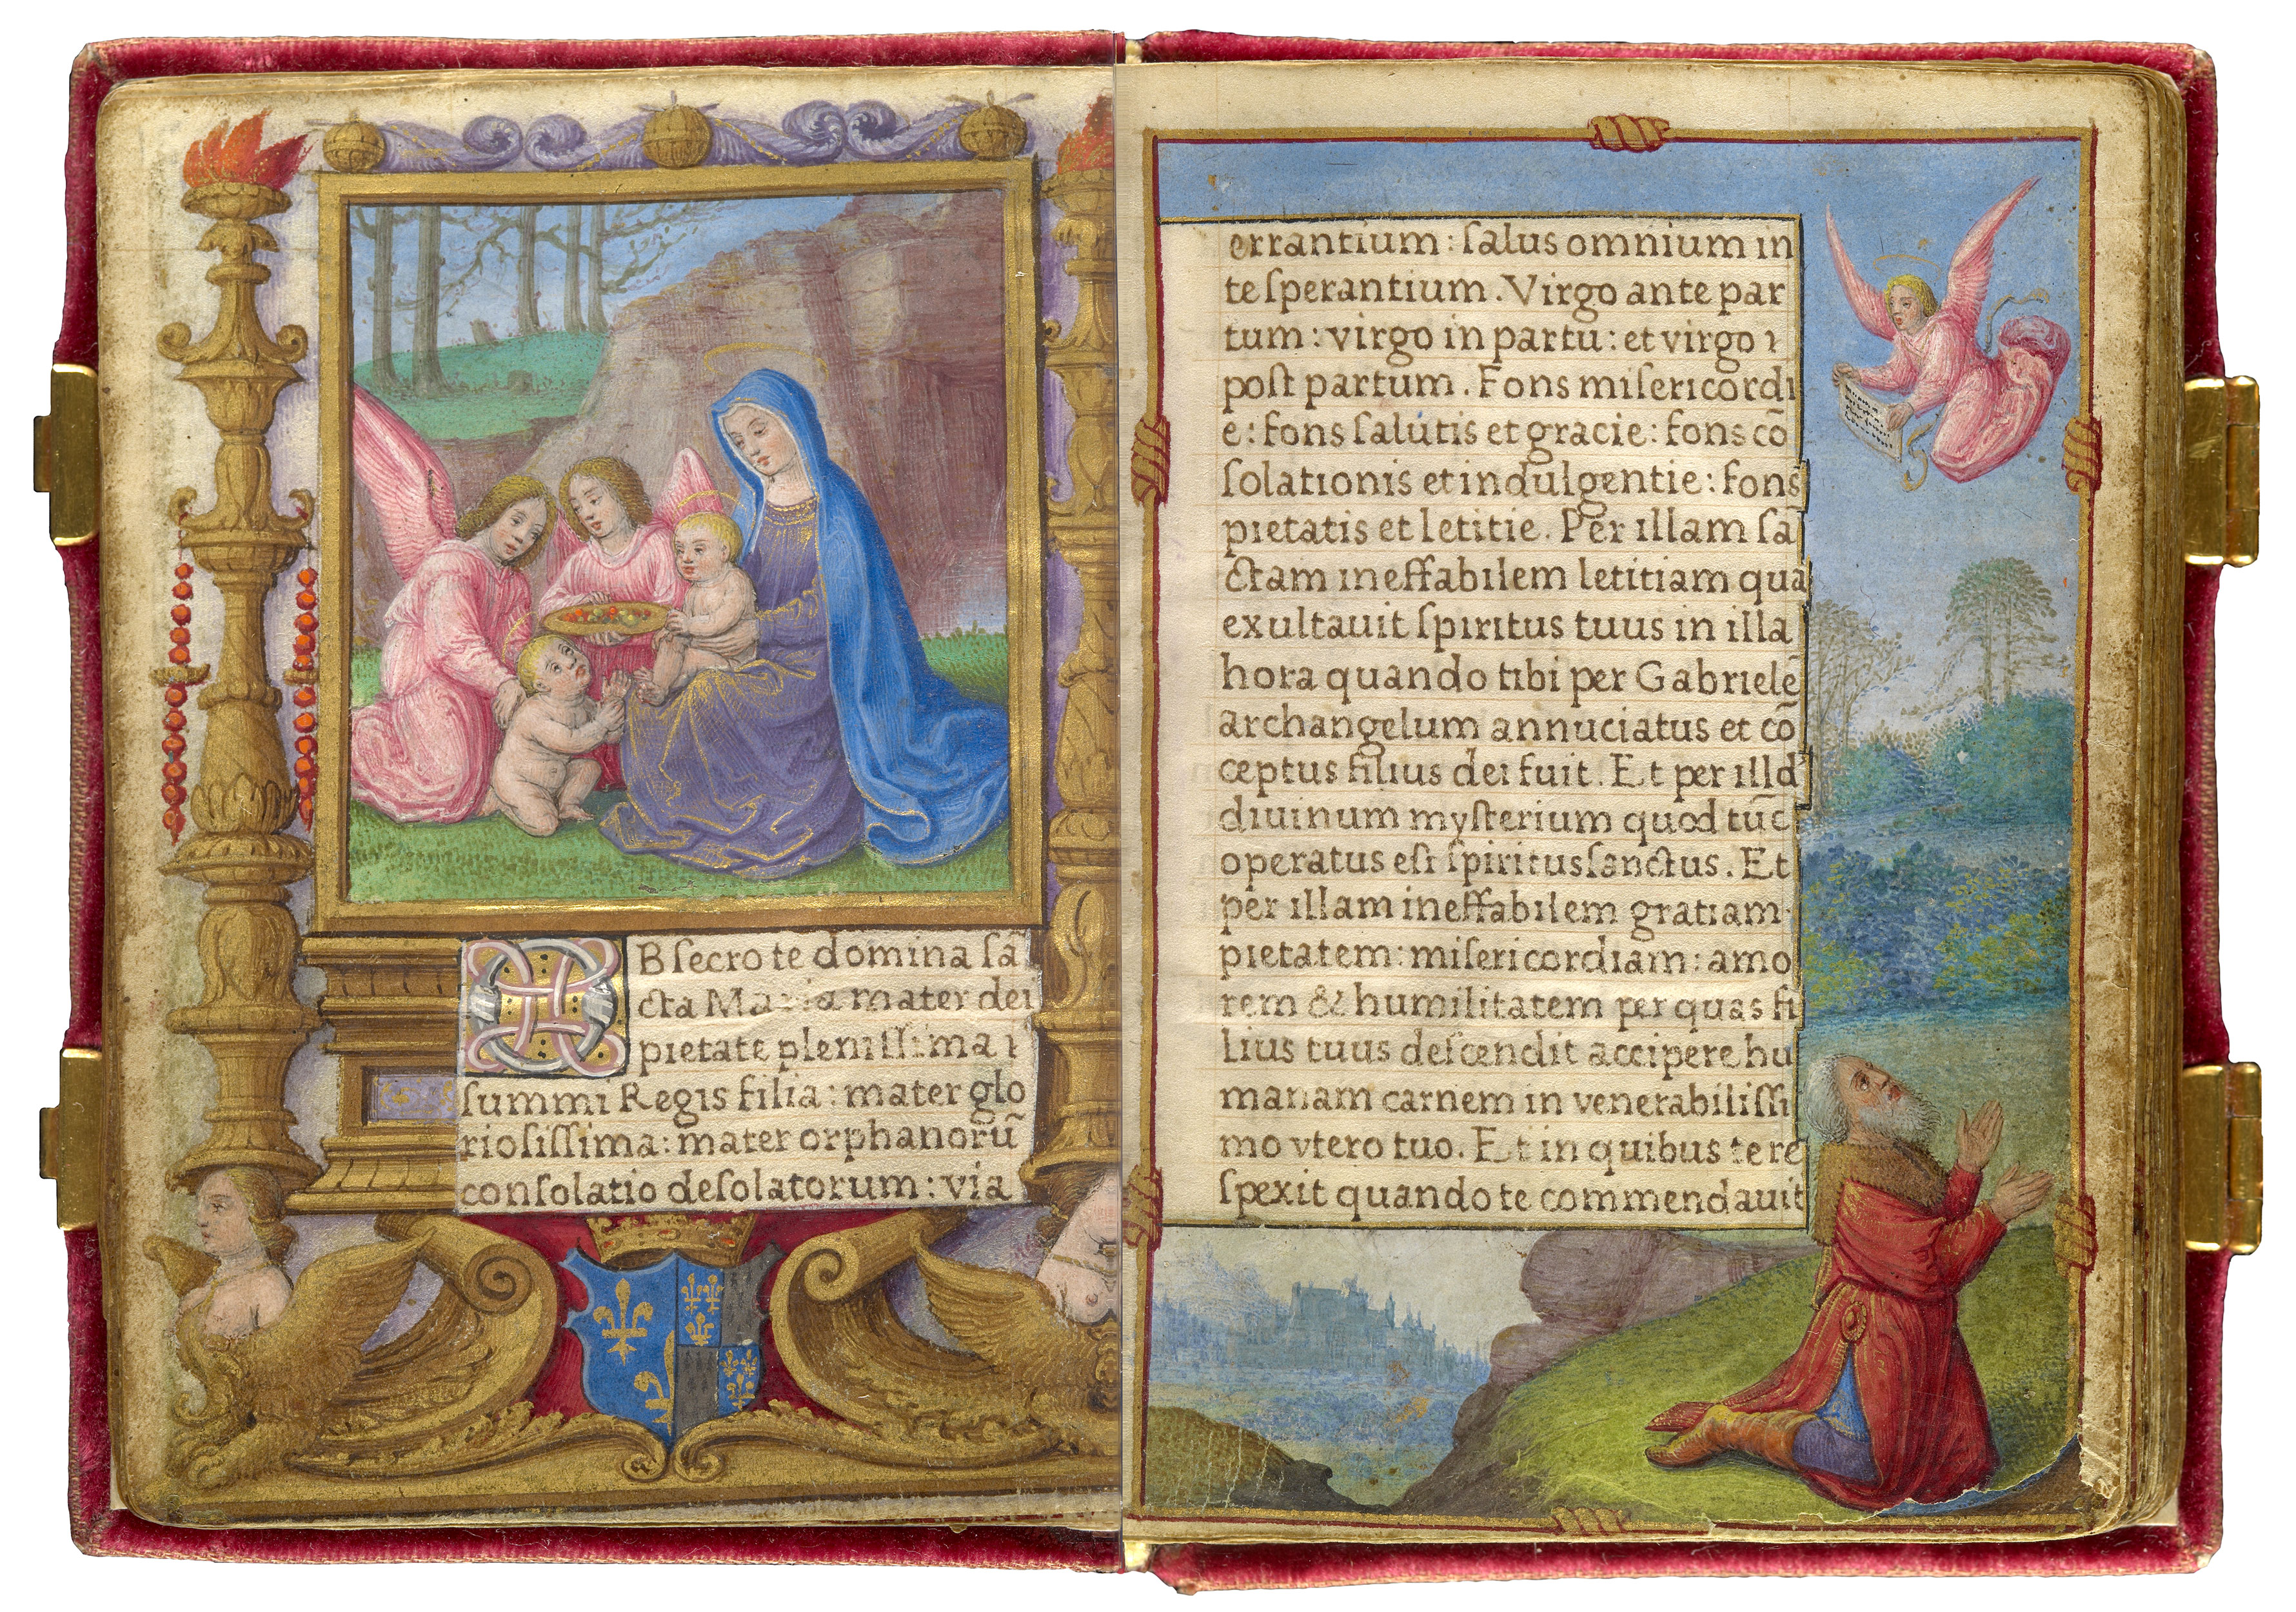 OBſecro te domina ſā
cta Maria mater dei
pietate pleniſſima ı
ſummi Regis filia: mater glo
rioſiſſima: mater orphanorū
conſolatio deſolatorum: via
errantium: ſalus omnium in
te ſperantium. Virgo ante par
tum: virgo in partu: et virgo ı
poſt partum. Fons miſericordi
e: fons ſalutis et gracie: fons cō
ſolationis et indulgentie: fons
pietatis et letitie. Per illam ſā
ctam ineffabilem letitiam qua
exultauit ſpiritus tuus in illa
hora quando tibi per Gabrielē
archangelum annuciatus et cō
ceptus filius dei fuit. Et per illd
diuinum myſterium quod tūc
operatus eſt ſpirituſſanctus. Et
per illam ineffabilem gratiam
pietatem: miſericordiam: amo
rem & humilitatem per quas fi
lius tuus deſcendit accipere hu
manam carnem in venerabiliſſi
mo vtero tuo. Et in quibus te re
ſpexit quando te commendauit